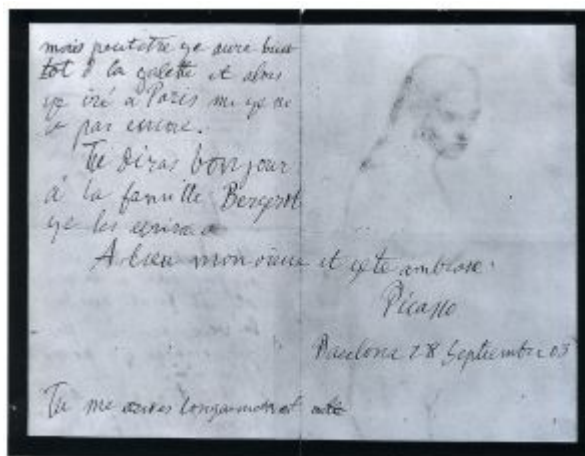 mais peutetre ye aure bien
tot d la galette et alors
ye iré a Paris me ye ne
pas encore.
Tu diras bonjour
á la famille Bergerot
ye les
Adieu mon vieux et ye te ambrase.
Picasso
Barcelona 28 Septiembre 03
Tu me